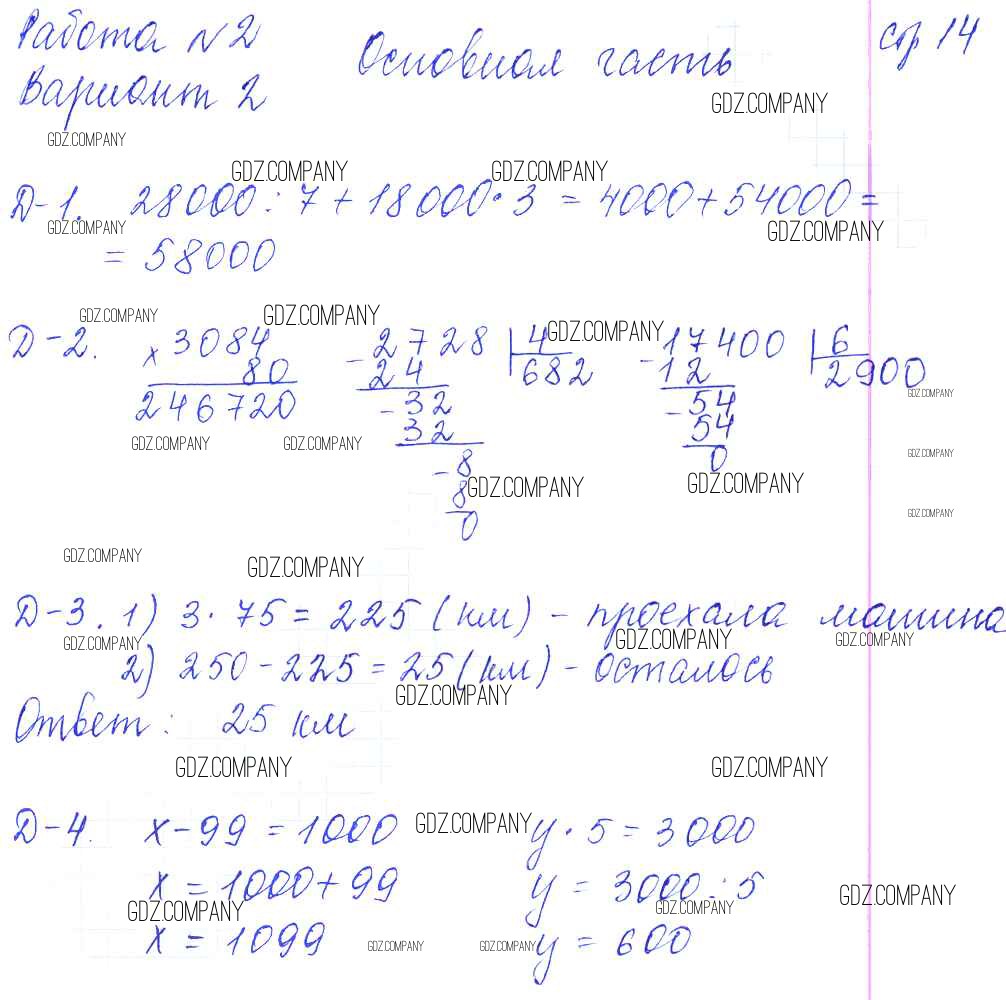 Работа №2
Основная часть
стр 14
Вариант 2
GDZ.COMPANY
GDZ.COMPANY
GDZ.COMPANY GDZ.COMPANY
Д-1. 28000 : 7 + 18000 · 3 = 4000 + 54000 =
GDZ.COMPANY GDZ.COMPANY
= 58000
GDZ.COMPANY GDZ.COMPANY GDZ.COMPANY
Д-2. × 3084 - 2728 | 4 - 17400 | 6
80 24 682 12 2900
246720 - 32 - 54
32 54
- 8 0
8
0
GDZ.COMPANY
GDZ.COMPANY GDZ.COMPANY
GDZ.COMPANY
GDZ.COMPANY GDZ.COMPANY
GDZ.COMPANY
GDZ.COMPANY GDZ.COMPANY
Д-3. 1) 3 · 75 = 225 (км) - проехала машина
GDZ.COMPANY GDZ.COMPANY GDZ.COMPANY
2) 250 - 225 = 25 (км) - осталось
GDZ.COMPANY
Ответ: 25 км
GDZ.COMPANY GDZ.COMPANY
Д-4. x - 99 = 1000 GDZ.COMPANY y · 5 = 3000
x = 1000 + 99 y = 3000 : 5
GDZ.COMPANY GDZ.COMPANY GDZ.COMPANY
x = 1099 GDZ.COMPANY GDZ.COMPANY y = 600